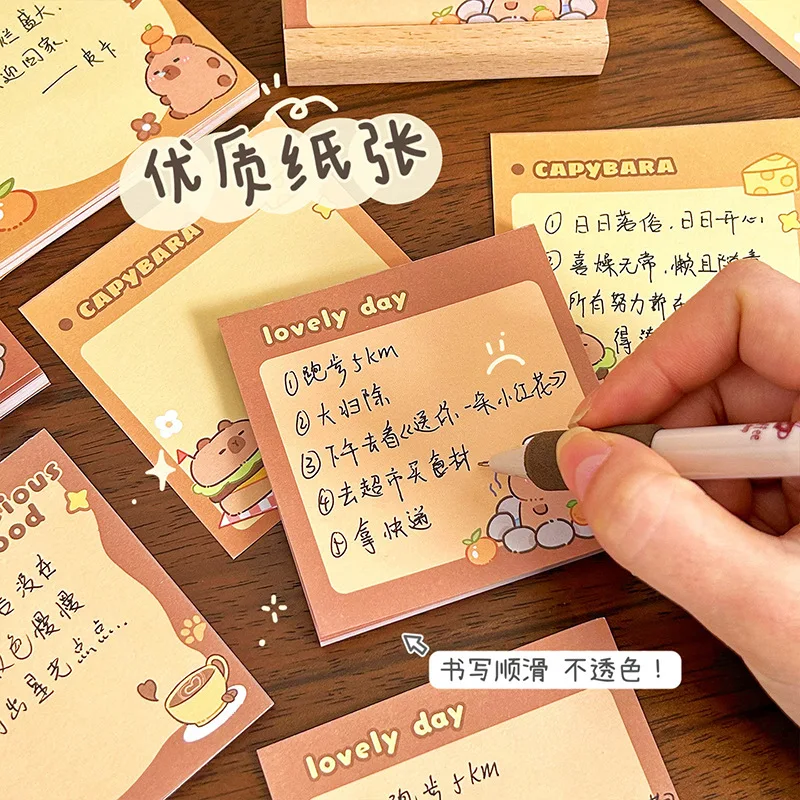 盛大.
回家.
—— 皮卡
优质纸张
CAPYBARA
CAPYBARA
① 日日落俗,日日开心.
喜燥无常,懒且随意
所有努力都在
得
lovely day
① 跑步5km
② 大扫除
③ 下午去看《送你一朵小红花》
④ 去超市买食材
⑤ 拿快递
ious
ood
没在
色慢慢
出星光点点...
书写顺滑 不透色!
lovely day
跑步5km